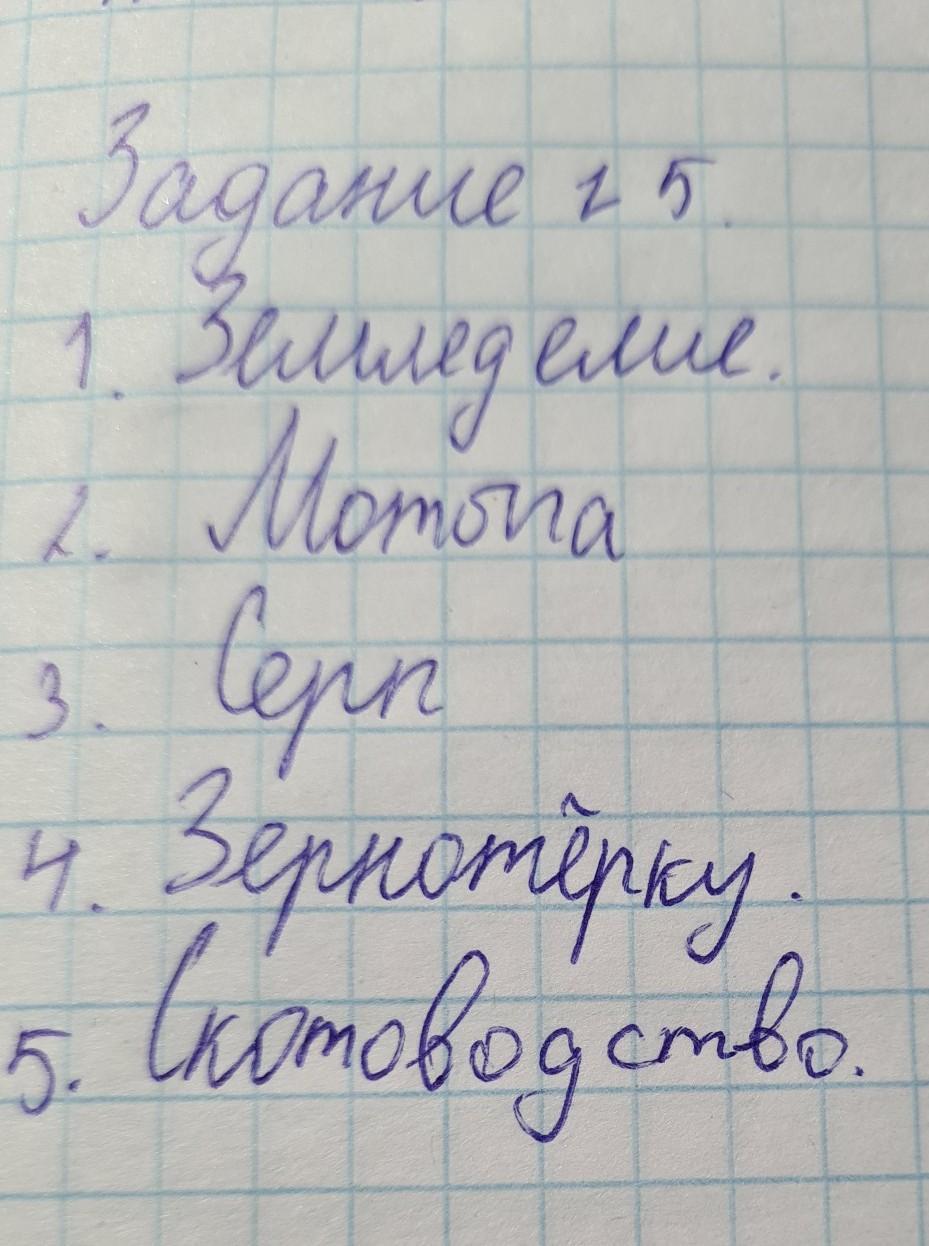 Задание 25.
1. Земледелие.
2. Мотыга
3. Серп
4. Зернотёрку.
5. Скотоводство.